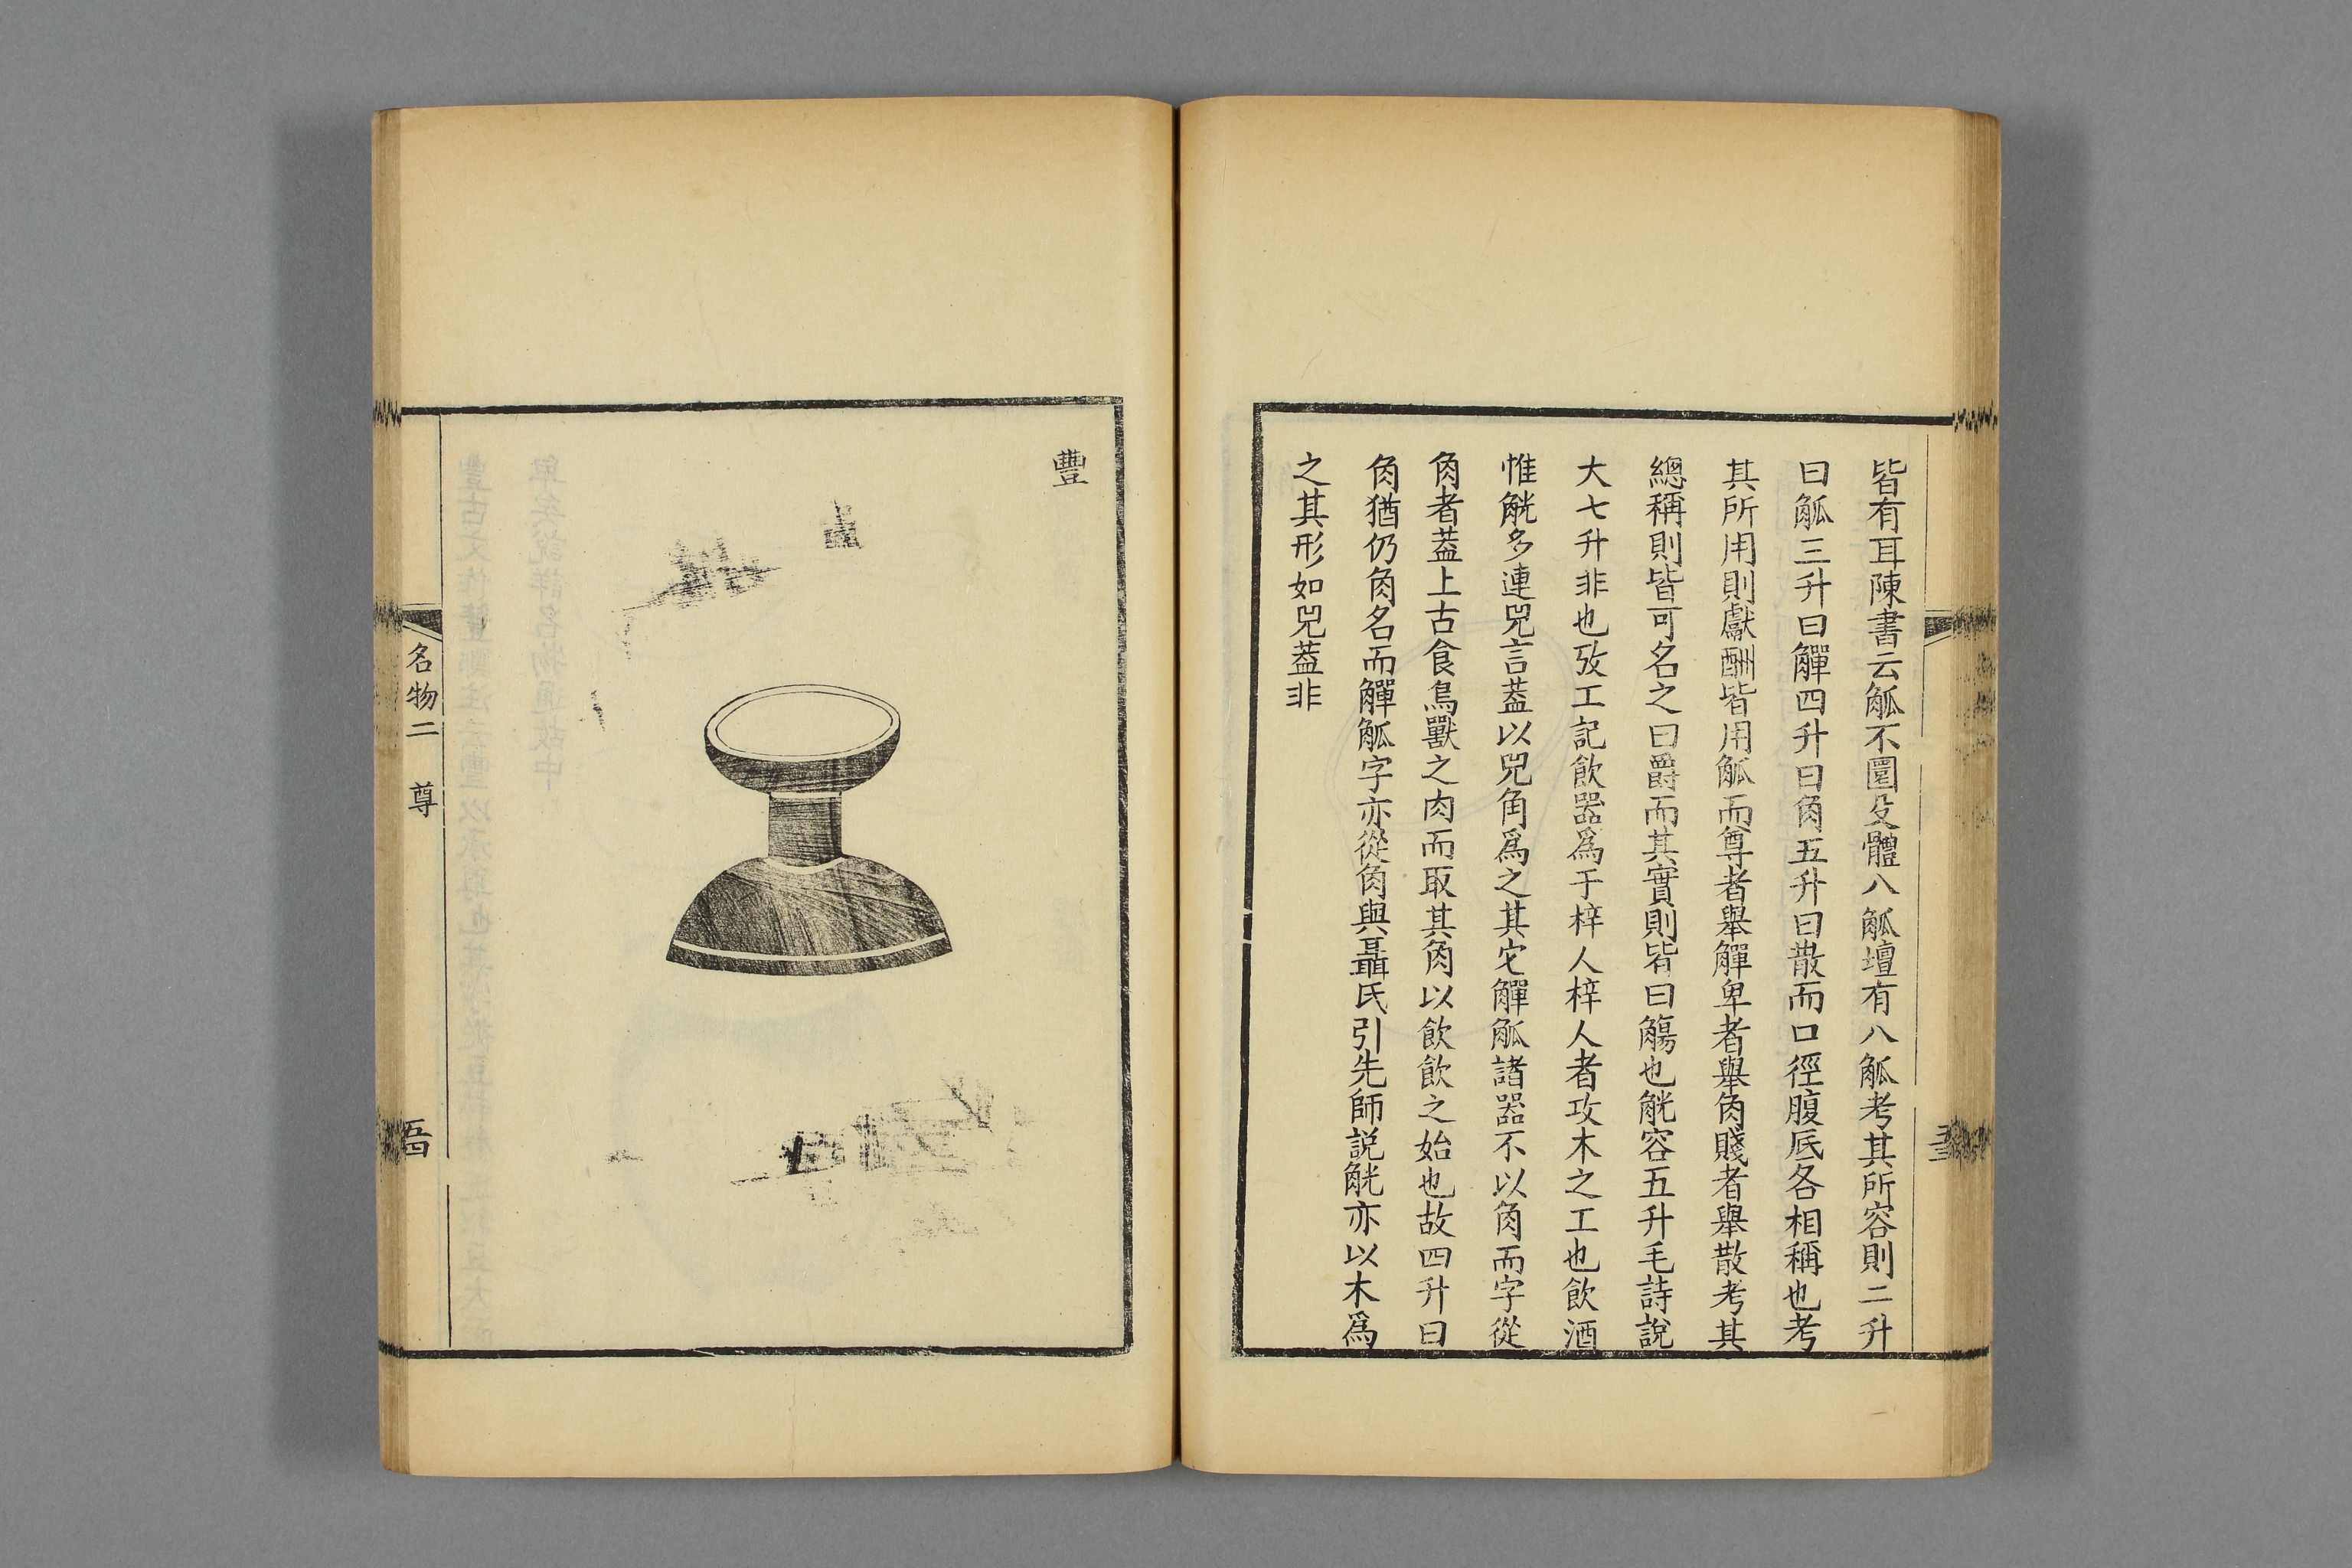 皆有耳陳書云觚不圜殳體八觚壇有八觚考其所容則二升
曰觚三升曰觶四升曰角五升曰散而口徑腹底各相稱也考
其所用則獻酬皆用觚而尊者舉觶卑者舉角賤者舉散考其
總稱則皆可名之曰爵而其實則皆曰觴也觥容五升毛詩說
大七升非也攷工記飲器爲于梓人梓人者攻木之工也飲酒
惟觥多連兕言蓋以兕角爲之其它觶觚諸器不以角而字從
角者蓋上古食鳥獸之肉而取其角以飲飲之始也故四升曰
角猶仍角名而觶觚字亦從角與聶氏引先師説觥亦以木爲
之其形如兕蓋非
豐
名物二 尊